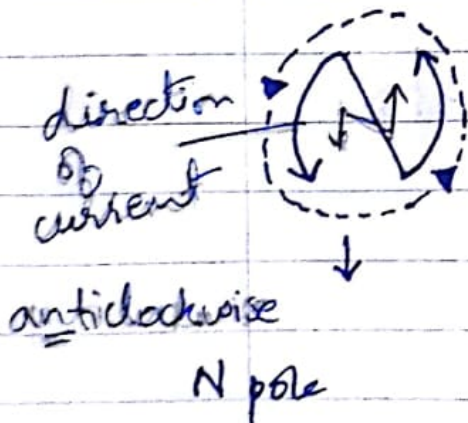 direction
of
current
N
anticlockwise
N pole